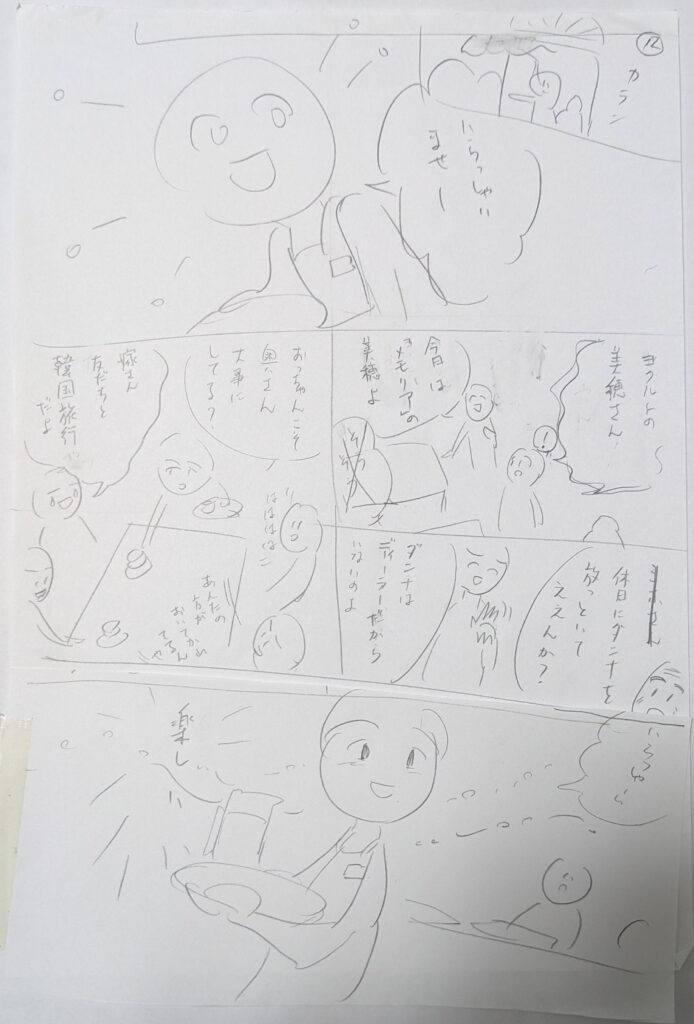 12
カラン
いらっしゃい
ませー
ヨクルトの
美穂さん
今日は
『メモリア』の
美穂よ
休日にダンナを
放っといて
ええんか?
ダンナは
ディーラーだから
いないのよ
おっちゃんこそ
奥さん
大事に
してる?
嫁さん
友だちと
韓国旅行
だよ
ははははは
あんたの
方が
おいてかれ
てるんや
いらっしゃい
楽しい